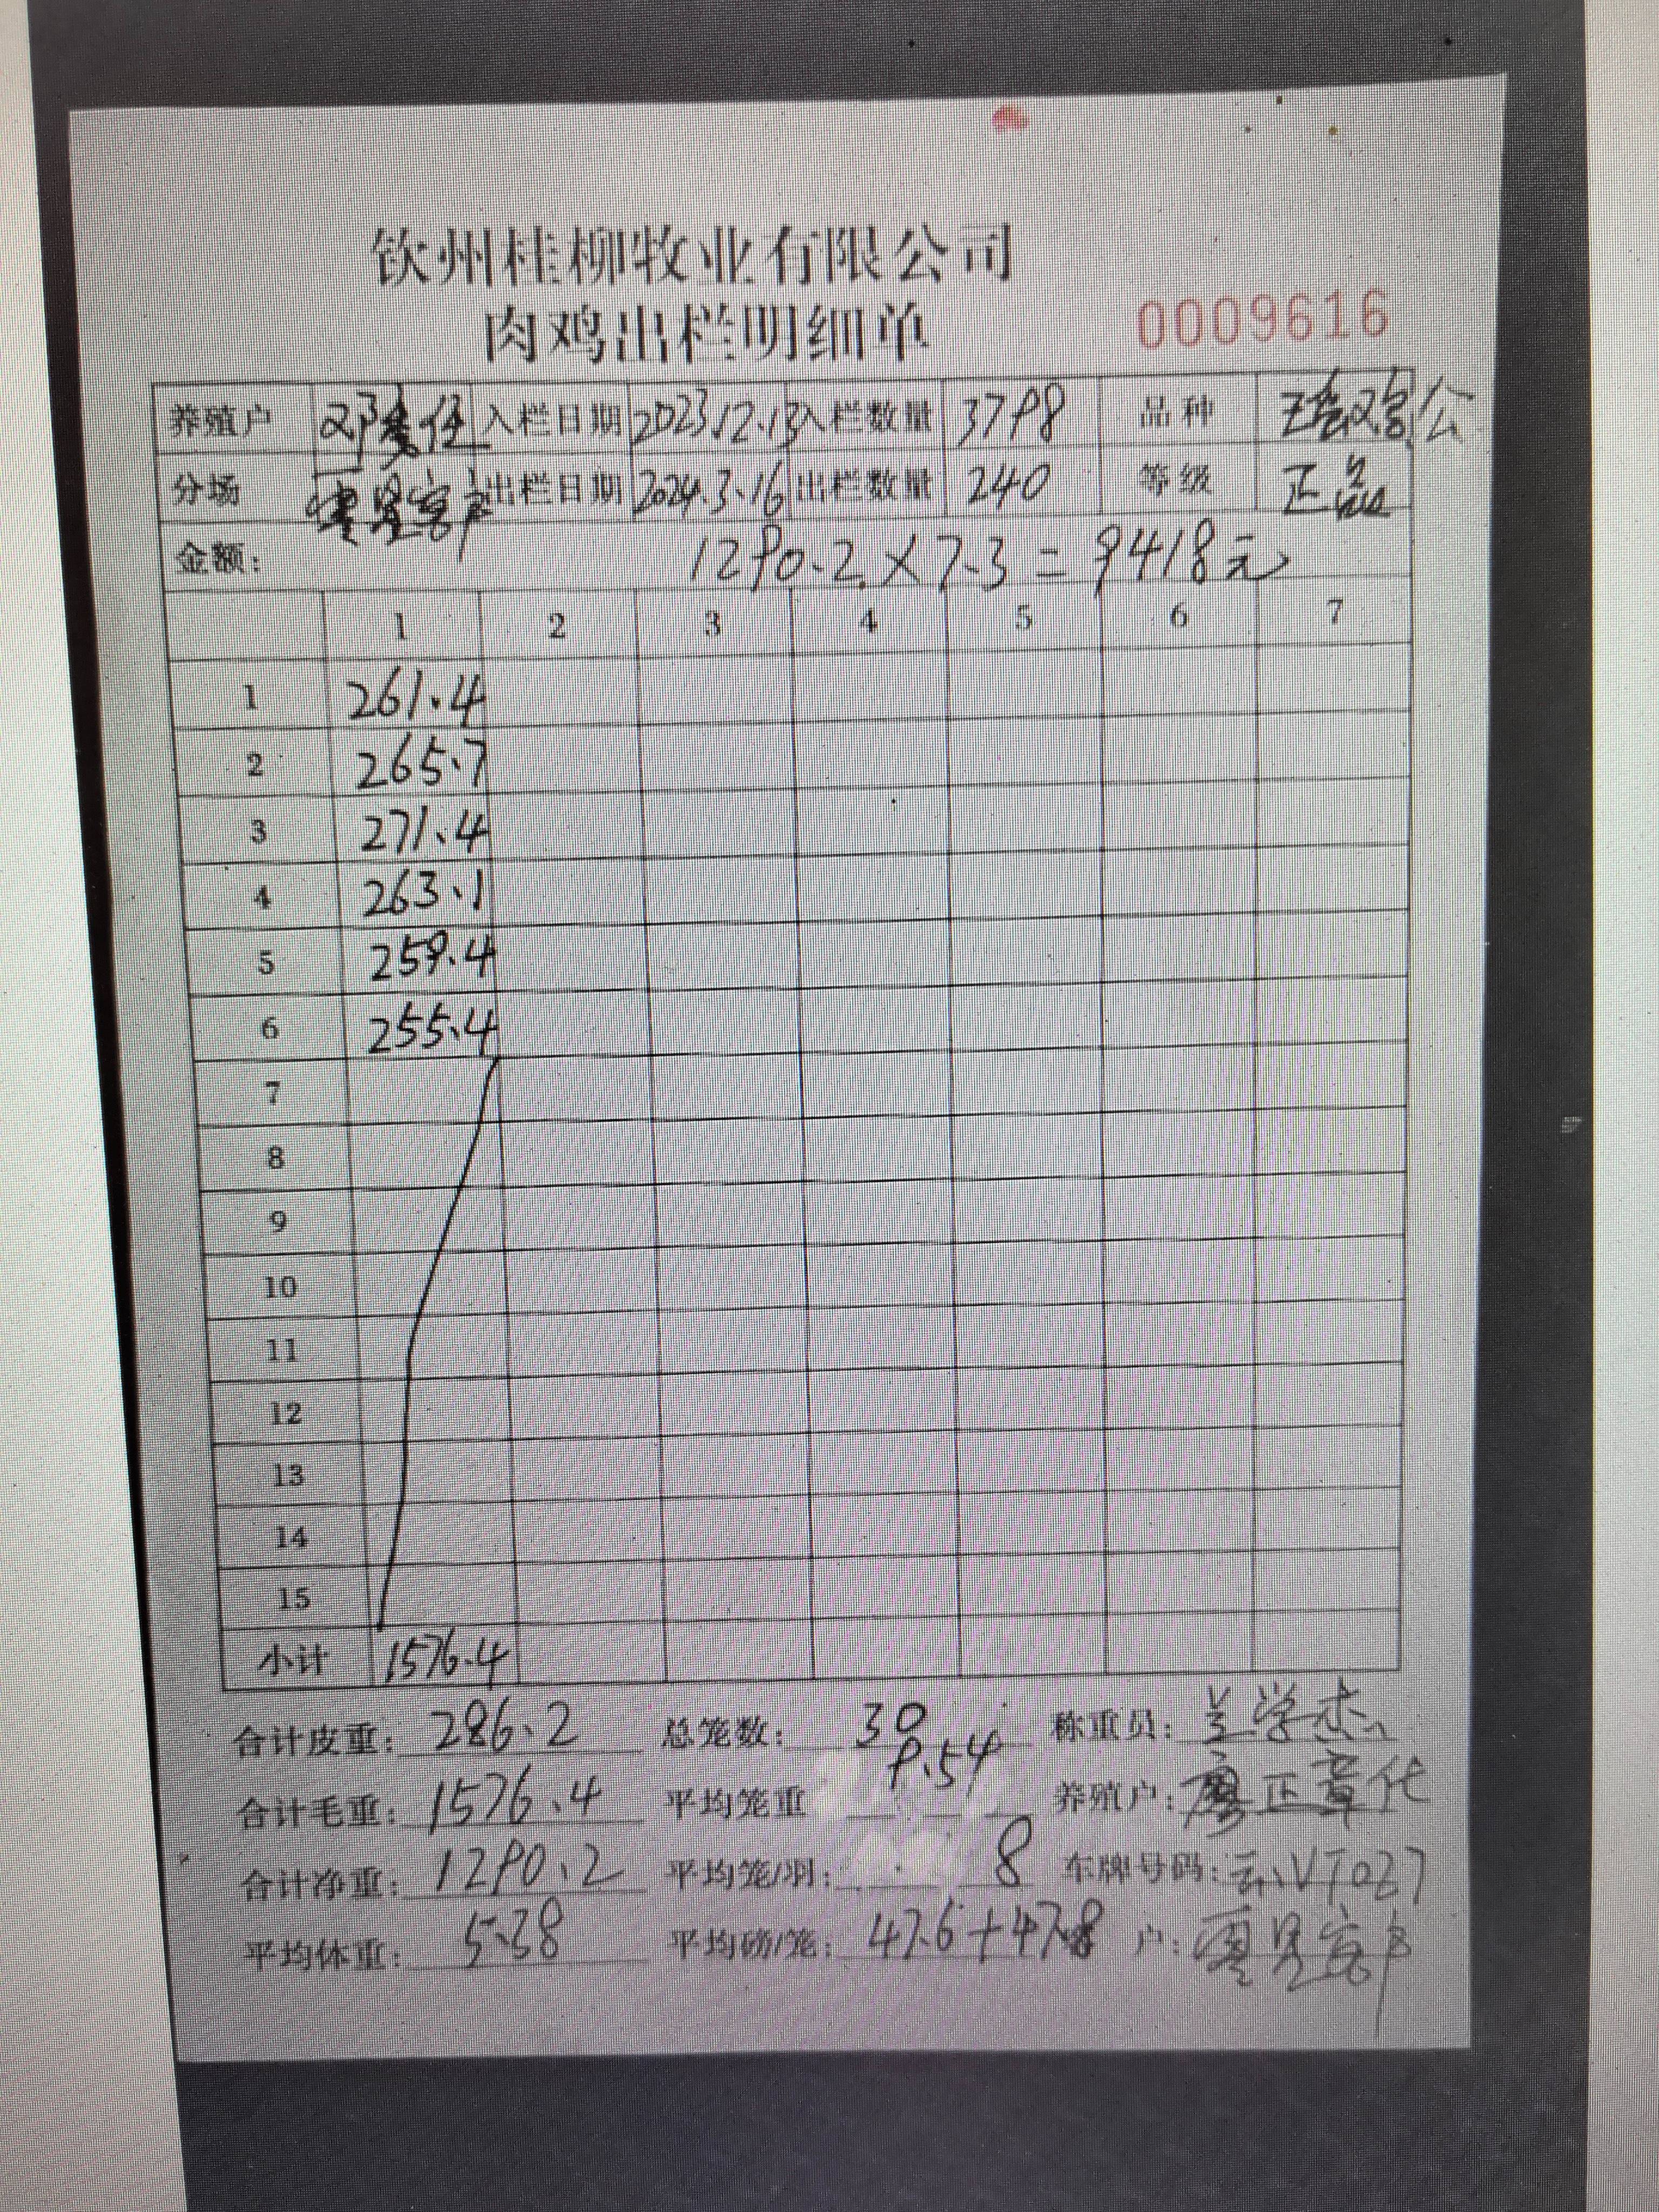 钦州桂柳牧业有限公司
肉鸡出栏明细单 0009616
养殖户 入栏日期 2023.12.13 入栏数量 3798 品种 公
分场 出栏日期 2024.3.16 出栏数量 240 等级 正品
金额: 1290.2×7.3=9418元
1 2 3 4 5 6 7
1 261.4
2 265.7
3 271.4
4 263.1
5 259.4
6 255.4
7
8
9
10
11
12
13
14
15
小计 1576.4
合计皮重: 286.2 总笼数: 30 称重员: 学杰
合计毛重: 1576.4 平均笼重 9.54 养殖户: 廖正章代
合计净重: 1290.2 平均笼/羽: 8 车牌号码:
平均体重: 5.38 平均磅/笼: 47.6+47.8 户: